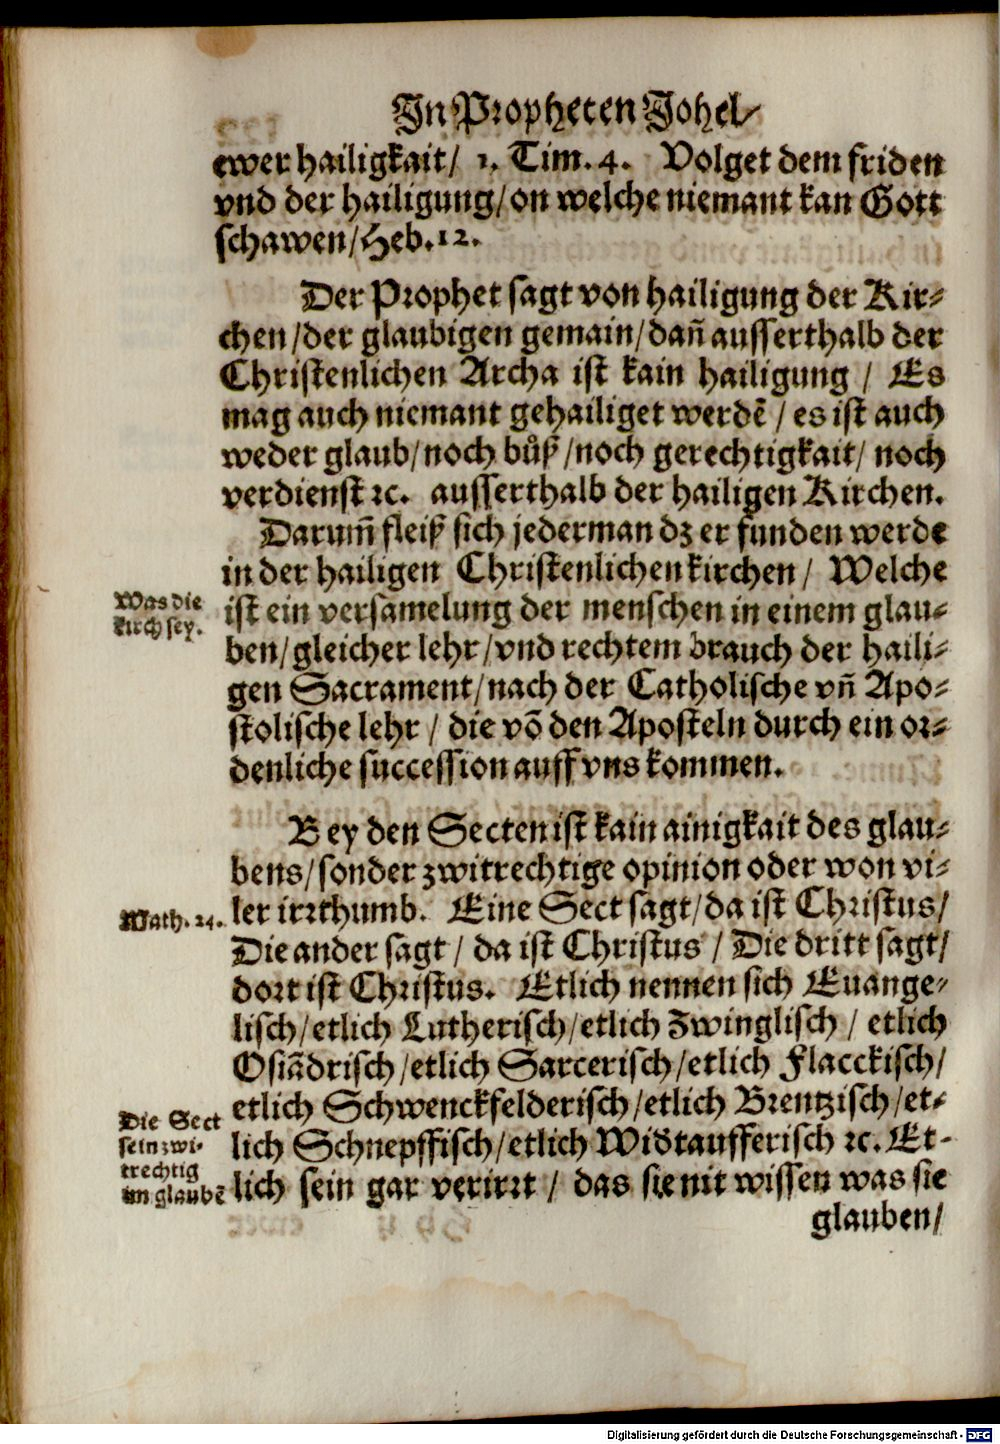 In Propheten Johel/
ewer hailigkait/ 1. Tim. 4. Volget dem friden
vnd der hailigung/on welche niemant kan Gott
schawen/Heb.12.
Der Prophet sagt von hailigung der Kir-
chen/der glaubigen gemain/dañ ausserthalb der
Christenlichen Archa ist kain hailigung / Es
mag auch niemant gehailiget werdẽ / es ist auch
weder glaub/noch bůß/noch gerechtigkait/ noch
verdienst ꝛc. ausserthalb der hailigen Kirchen.
Darum̃ fleiß sich jederman dz er funden werde
in der hailigen Christenlichen kirchen / Welche
Was die
kirch sey.
ist ein versamelung der menschen in einem glau-
ben/gleicher lehr/vnd rechtem brauch der haili-
gen Sacrament/nach der Catholische vñ Apo-
stolische lehr / die võ den Aposteln durch ein or-
denliche succession auff vns kommen.
Bey den Secten ist kain ainigkait des glau-
bens/sonder zwitrechtige opinion oder won vi-
Math. 24.
ler irrthumb. Eine Sect sagt/da ist Christus/
Die ander sagt / da ist Christus / Die dritt sagt/
dort ist Christus. Etlich nennen sich Euange-
lisch/etlich Lutherisch/etlich Zwinglisch / etlich
Osiãdrisch/etlich Sarcerisch/etlich Flacckisch/
Die Sect
sein zwi-
trechtig
im glaubẽ
etlich Schwenckfelderisch/etlich Brentzisch/et-
lich Schnepffisch/etlich Widtaufferisch ꝛc. Et-
lich sein gar verirrt / das sie nit wissen was sie
glauben/
Digitalisierung gefördert durch die Deutsche Forschungsgemeinschaft - DFG